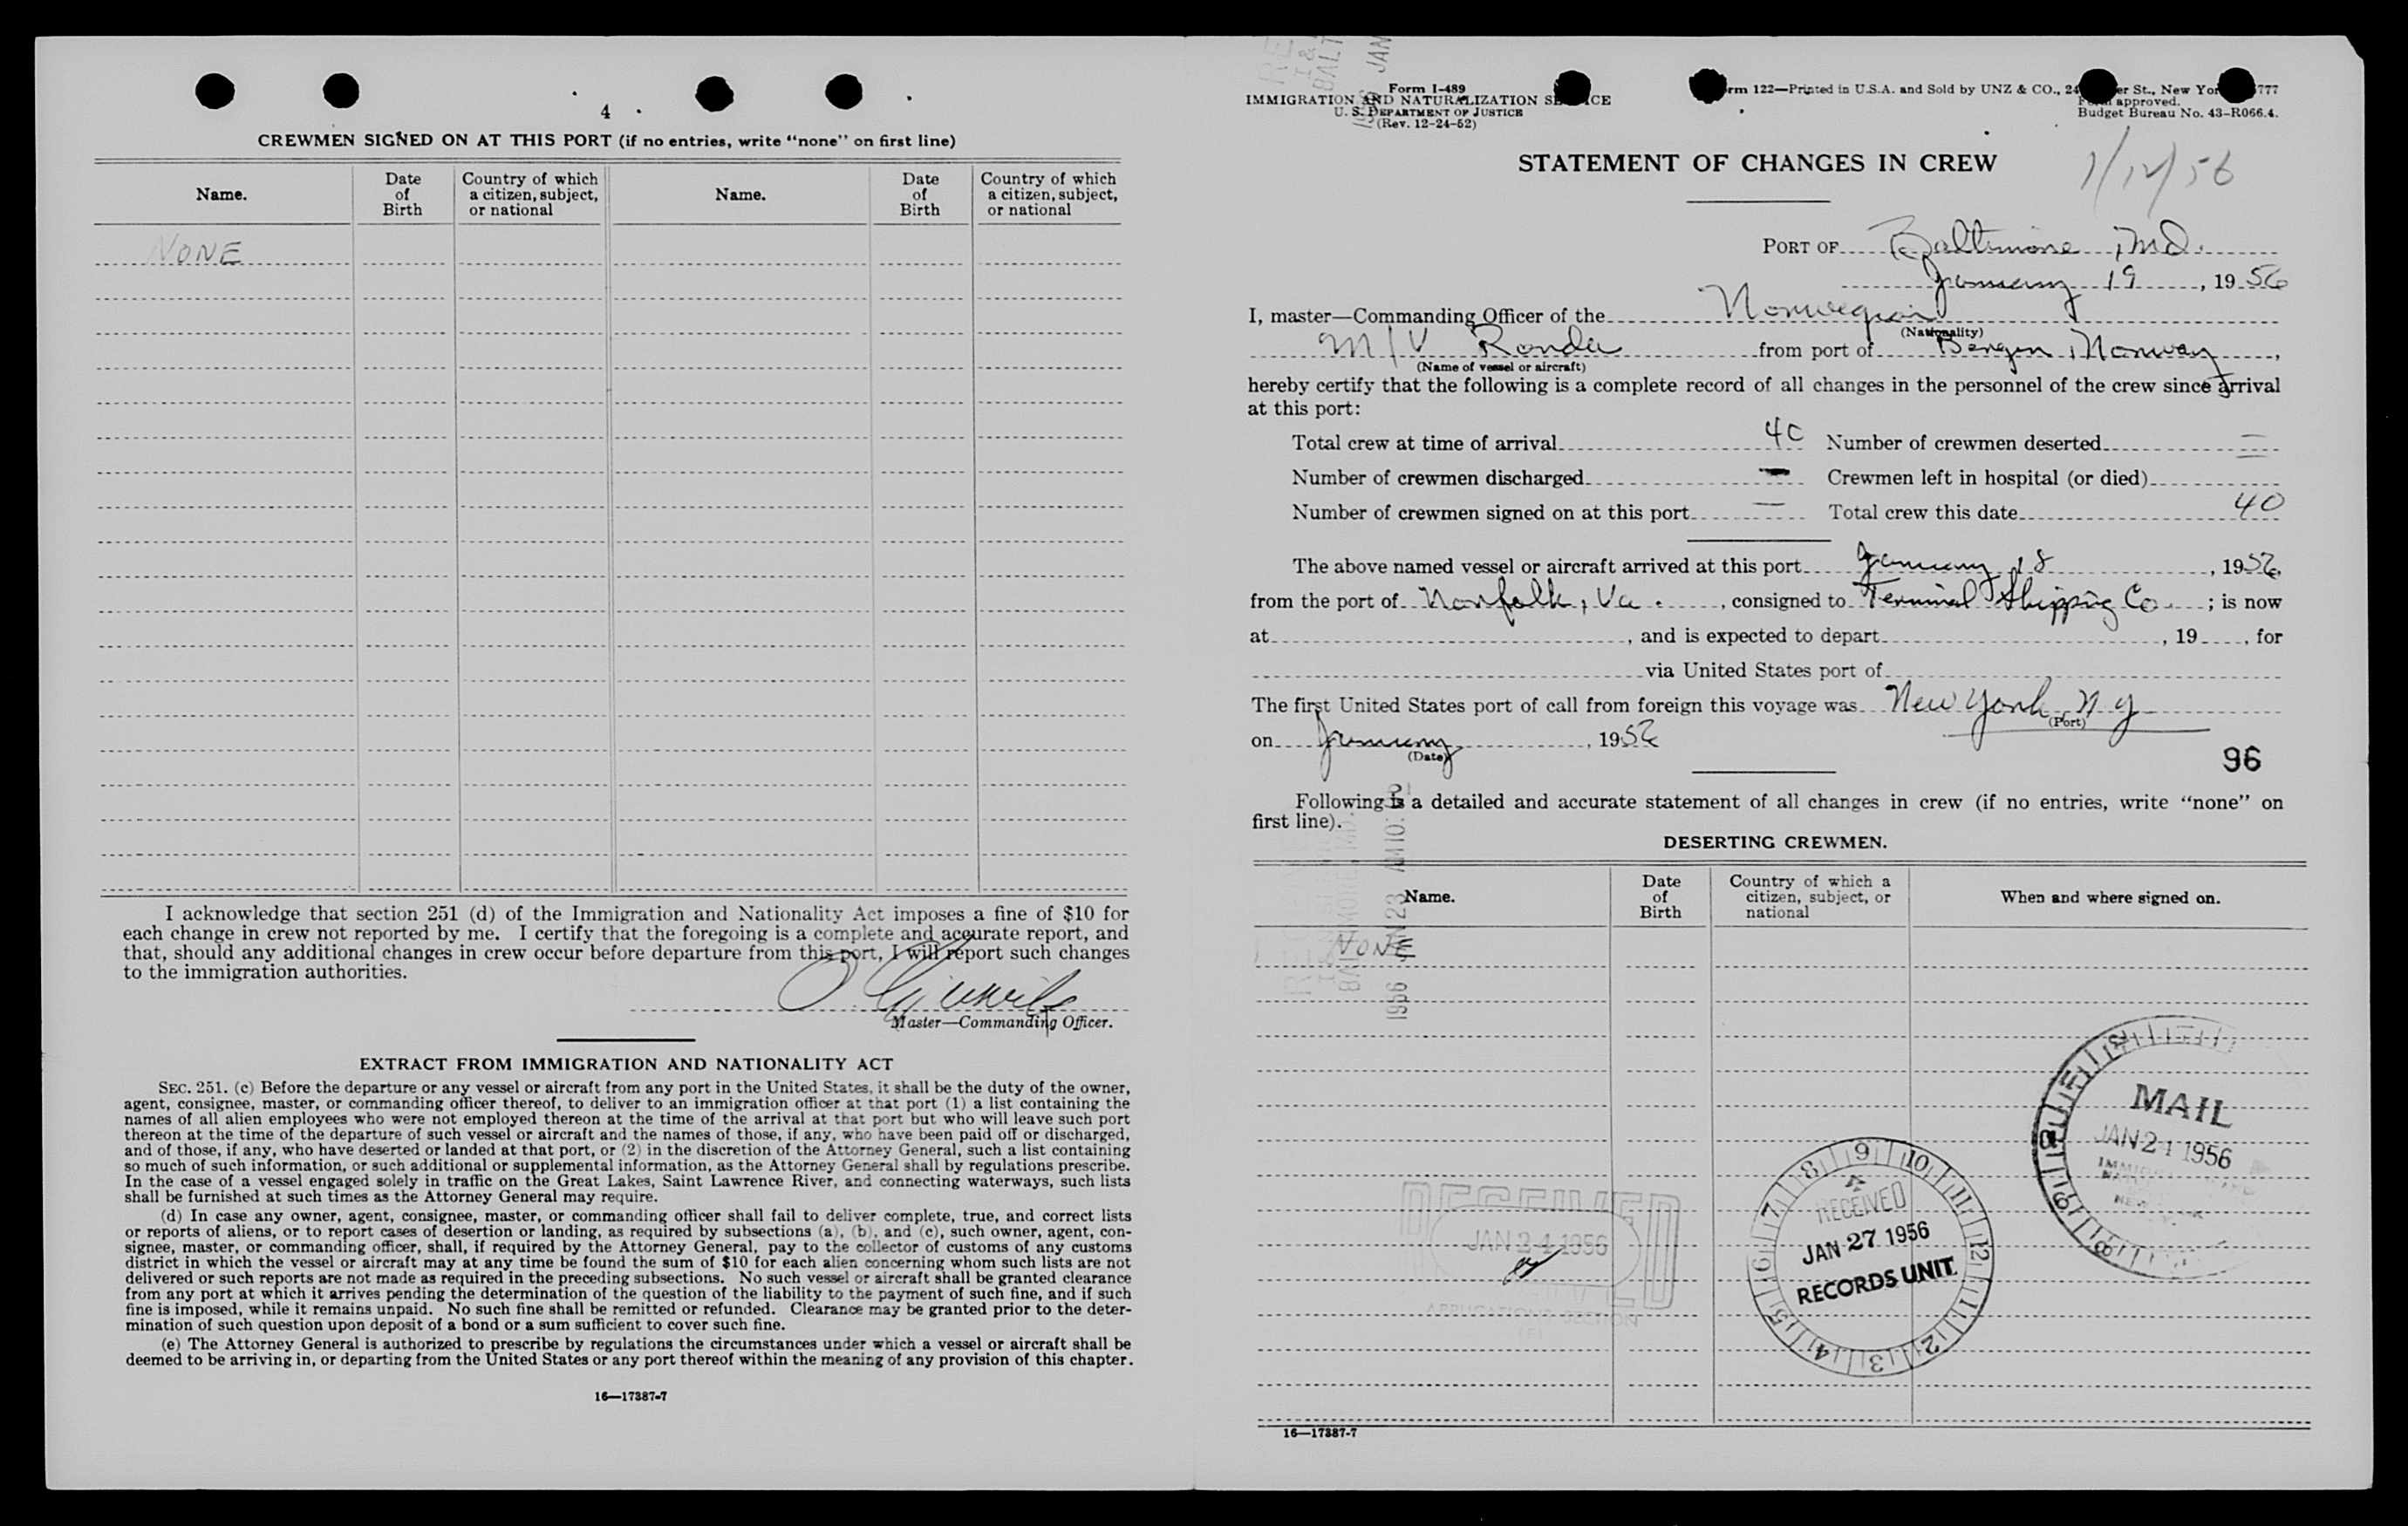 4
CREWMEN SIGNED ON AT THIS PORT (if no entries, write “none” on first line)
Name. Date of Birth Country of which a citizen, subject, or national Name. Date of Birth Country of which a citizen, subject, or national
NONE
I acknowledge that section 251 (d) of the Immigration and Nationality Act imposes a fine of $10 for
each change in crew not reported by me. I certify that the foregoing is a complete and accurate report, and
that, should any additional changes in crew occur before departure from this port, I will report such changes
to the immigration authorities.
Master—Commanding Officer.
EXTRACT FROM IMMIGRATION AND NATIONALITY ACT
SEC. 251. (c) Before the departure or any vessel or aircraft from any port in the United States, it shall be the duty of the owner,
agent, consignee, master, or commanding officer thereof, to deliver to an immigration officer at that port (1) a list containing the
names of all alien employees who were not employed thereon at the time of the arrival at that port but who will leave such port
thereon at the time of the departure of such vessel or aircraft and the names of those, if any, who have been paid off or discharged,
and of those, if any, who have deserted or landed at that port, or (2) in the discretion of the Attorney General, such a list containing
so much of such information, or such additional or supplemental information, as the Attorney General shall by regulations prescribe.
In the case of a vessel engaged solely in traffic on the Great Lakes, Saint Lawrence River, and connecting waterways, such lists
shall be furnished at such times as the Attorney General may require.
(d) In case any owner, agent, consignee, master, or commanding officer shall fail to deliver complete, true, and correct lists
or reports of aliens, or to report cases of desertion or landing, as required by subsections (a), (b), and (c), such owner, agent, con-
signee, master, or commanding officer, shall, if required by the Attorney General, pay to the collector of customs of any customs
district in which the vessel or aircraft may at any time be found the sum of $10 for each alien concerning whom such lists are not
delivered or such reports are not made as required in the preceding subsections. No such vessel or aircraft shall be granted clearance
from any port at which it arrives pending the determination of the question of the liability to the payment of such fine, and if such
fine is imposed, while it remains unpaid. No such fine shall be remitted or refunded. Clearance may be granted prior to the deter-
mination of such question upon deposit of a bond or a sum sufficient to cover such fine.
(e) The Attorney General is authorized to prescribe by regulations the circumstances under which a vessel or aircraft shall be
deemed to be arriving in, or departing from the United States or any port thereof within the meaning of any provision of this chapter.
16—17387-7
Form I-489
IMMIGRATION AND NATURALIZATION SERVICE
U. S. DEPARTMENT OF JUSTICE
(Rev. 12-24-52)
rm 122—Printed in U.S.A. and Sold by UNZ & CO., 24 er St., New Yor 777
approved.
Budget Bureau No. 43-R066.4.
STATEMENT OF CHANGES IN CREW
1/12/56
PORT OF Baltimore, Md.
January 19, 1956
I, master—Commanding Officer of the Norwegian
(Nationality)
M/V Ronda from port of Bergen, Norway,
(Name of vessel or aircraft)
hereby certify that the following is a complete record of all changes in the personnel of the crew since arrival
at this port:
Total crew at time of arrival 40 Number of crewmen deserted —
Number of crewmen discharged — Crewmen left in hospital (or died) —
Number of crewmen signed on at this port — Total crew this date 40
The above named vessel or aircraft arrived at this port January 18, 1956,
from the port of Norfolk, Va., consigned to Terminal Shipping Co.; is now
at , and is expected to depart , 19 , for
via United States port of
The first United States port of call from foreign this voyage was New York N.Y
(Port)
on January, 1956
(Date)
96
Following is a detailed and accurate statement of all changes in crew (if no entries, write “none” on
first line).
DESERTING CREWMEN.
Name. Date of Birth Country of which a citizen, subject, or national When and where signed on.
NONE
MAIL
JAN 24 1956
RECEIVED
JAN 24 1956
9 10 11 12 1 2 3 4 5 6 7 8
RECEIVED
JAN 27 1956
RECORDS UNIT
16—17387-7